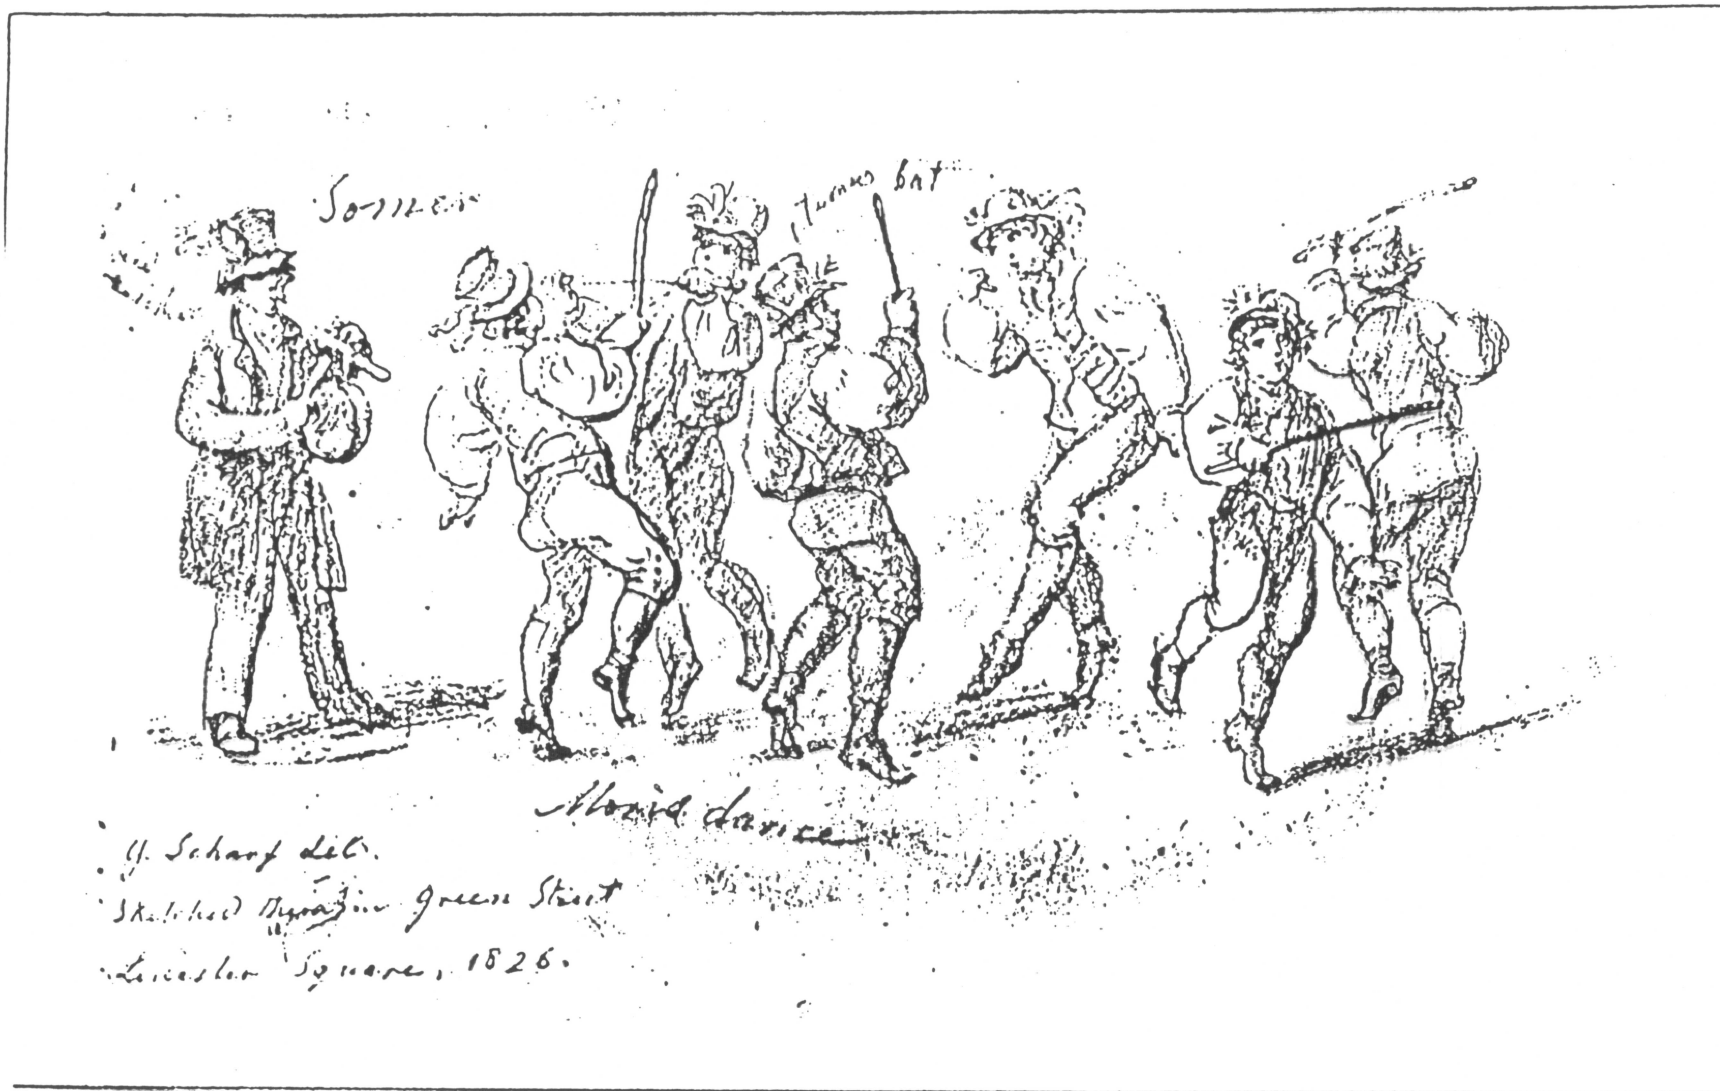 Somer
bat
Moris dance
G. Scharf del.
Sketched in Green Street
Leicester Square, 1826.